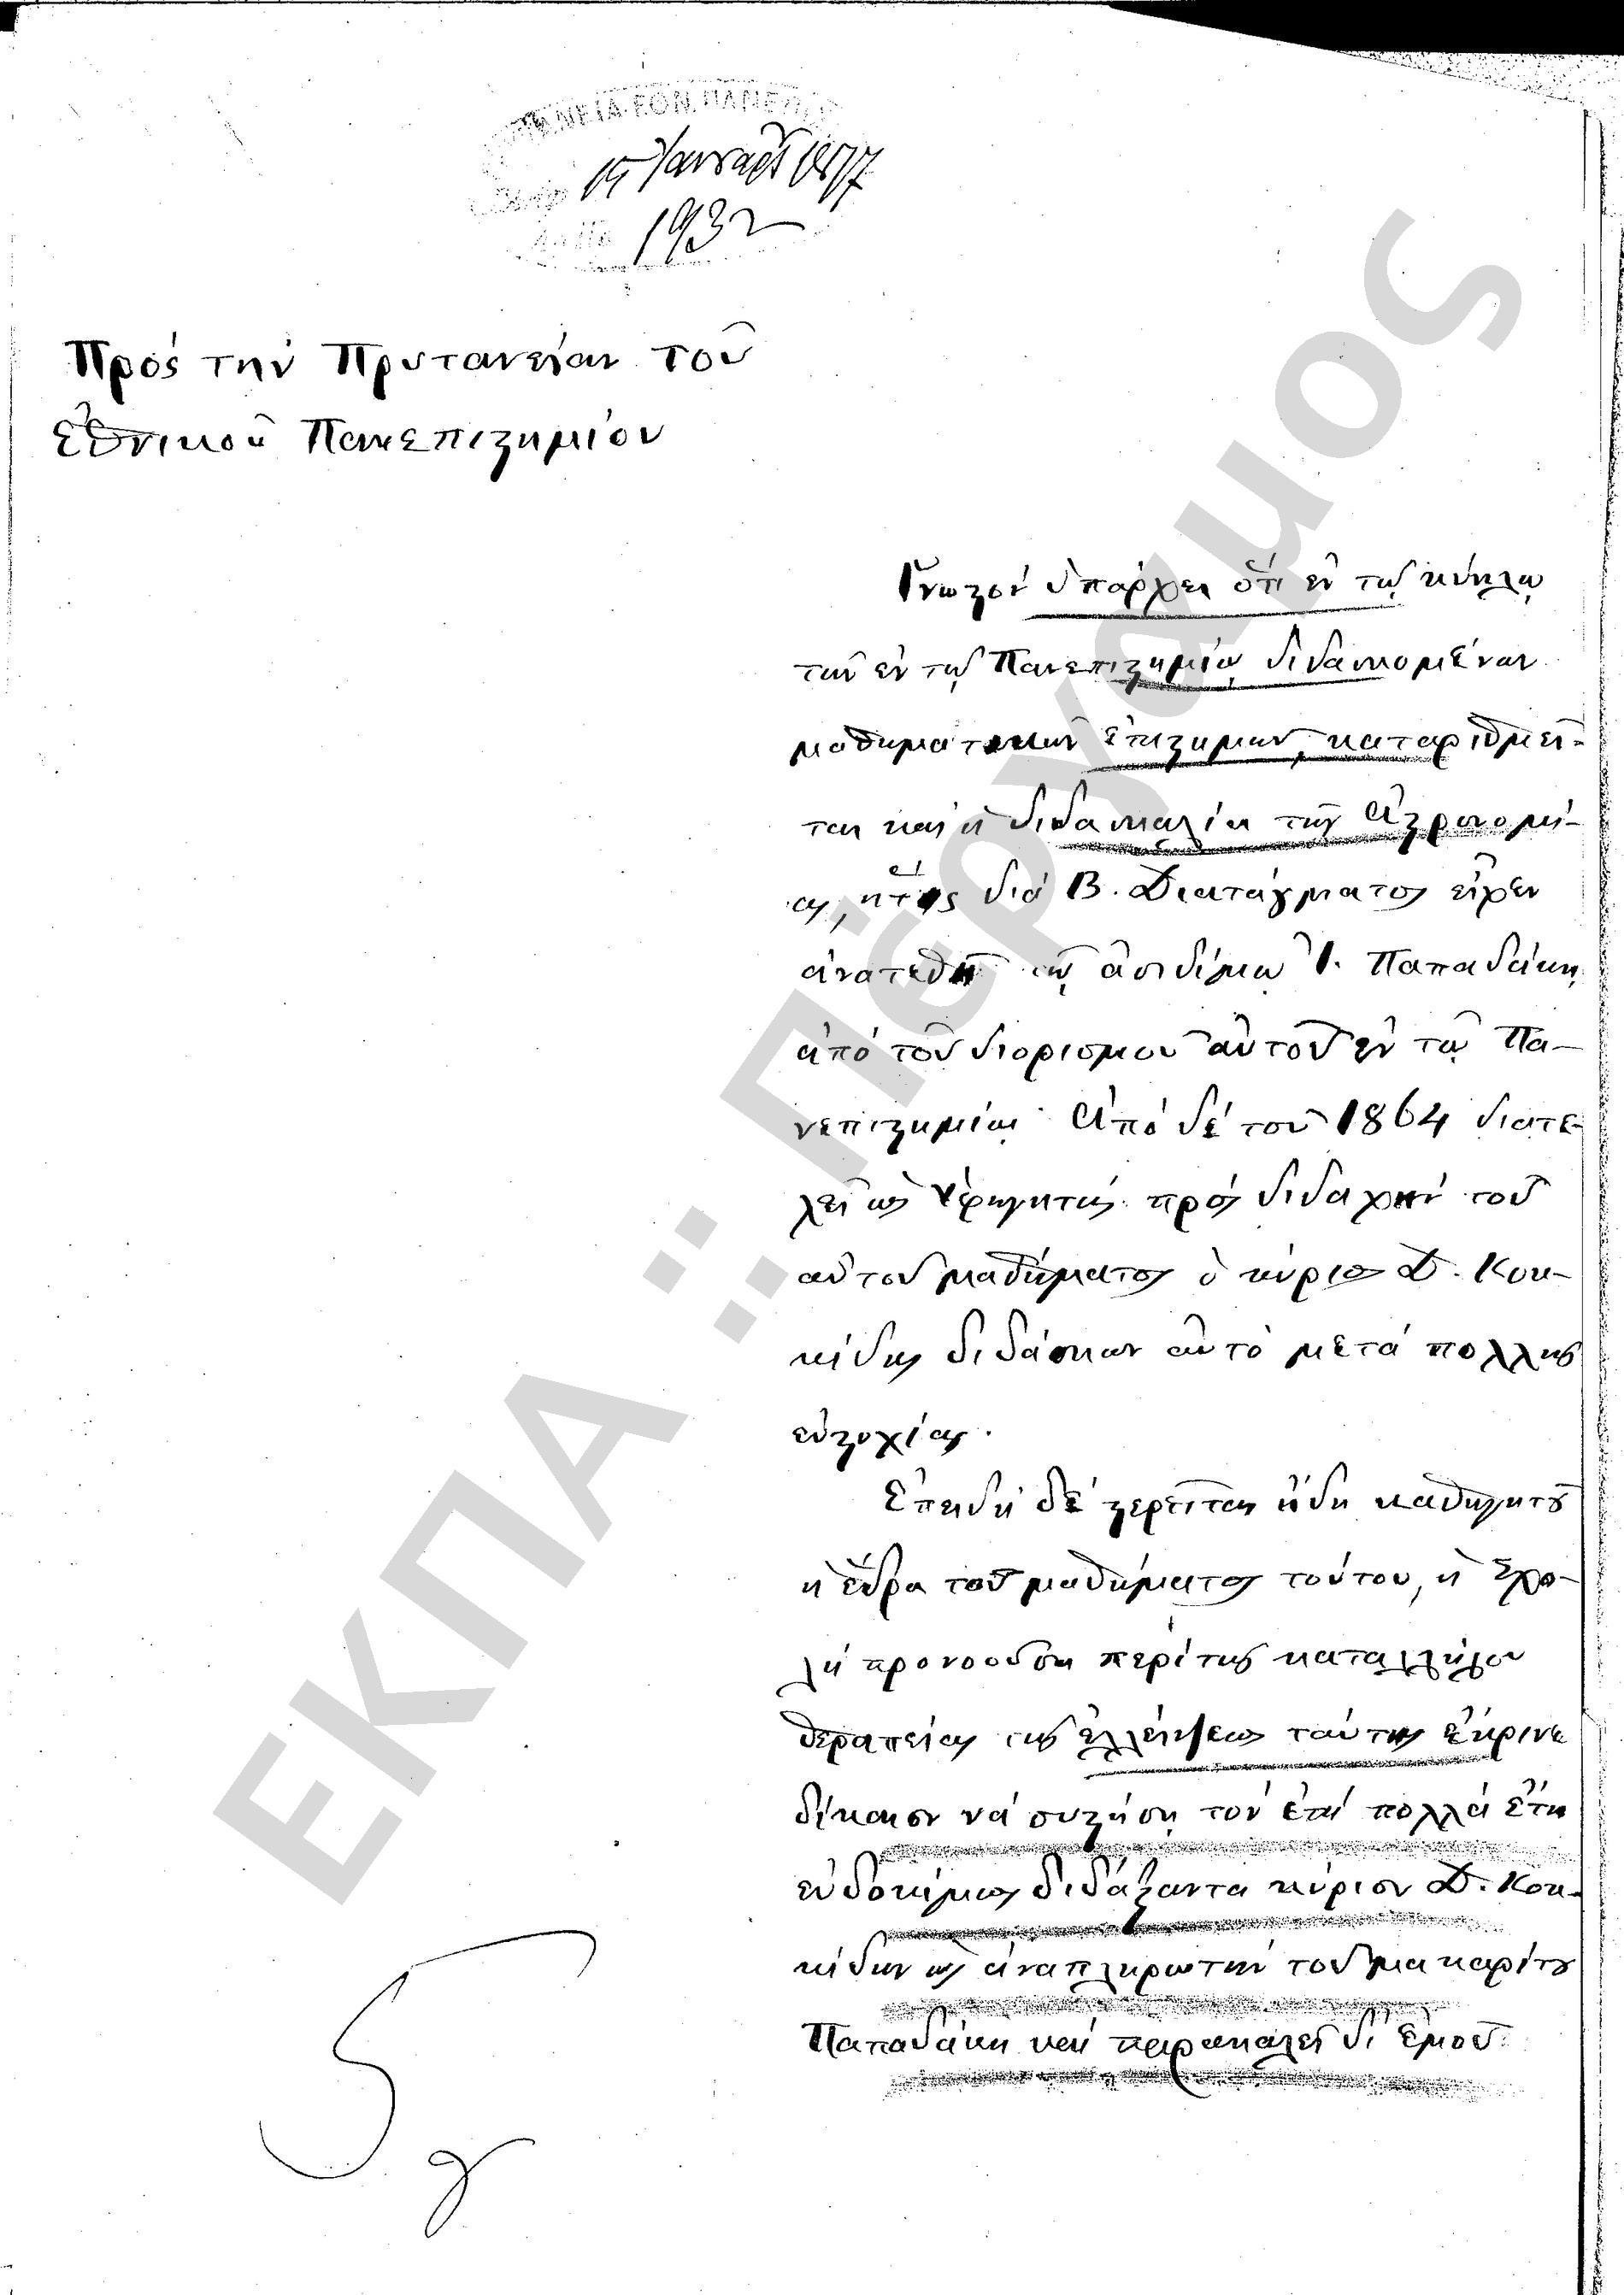 ΝΕΙΑ ΕΘΝ. ΠΑΝΕΠ
Ἰανουαρ 1877
1932
Πρὸς τὴν Πρυτανείαν τοῦ
Ἐθνικοῦ Πανεπιστημίου
Γνωστὸν ὑπάρχει ὅτι ἐν τῷ κύκλῳ
τῶν ἐν τῷ Πανεπιστημίῳ διδασκομένων
μαθηματικῶν ἐπιστημῶν, καταριθμεῖ-
ται καὶ ἡ διδασκαλία τῆς Ἀστρονομί-
ας, ἥτις διὰ Β. Διατάγματος εἶχεν
ἀνατεθῆ τῷ ἀοιδίμῳ Ι. Παπαδάκῃ
ἀπὸ τοῦ διορισμοῦ αὐτοῦ ἐν τῷ Πα-
νεπιστημίῳ. Ἀπὸ δὲ τοῦ 1864 διατε-
λεῖ ὡς Ὑφηγητὴς πρὸς διδαχὴν τοῦ
αὐτοῦ μαθήματος ὁ κύριος Δ. Κοκ-
κίδης διδάσκων αὐτὸ μετὰ πολλῆς
εὐστοχίας.
Ἐπειδὴ δὲ στερεῖται ἤδη καθηγητοῦ
ἡ ἕδρα τοῦ μαθήματος τούτου, ἡ Σχο-
λὴ προνοοῦσα περὶ τῆς καταλλήλου
θεραπείας τῆς ἐλλείψεως ταύτης ἔκρινε
δίκαιον νὰ συστήσῃ τὸν ἐπὶ πολλὰ ἔτη
εὐδοκίμως διδάξαντα κύριον Δ. Κοκ-
κίδην ὡς ἀναπληρωτὴν τοῦ μακαρίτου
Παπαδάκη καὶ παρακαλεῖ δι' ἐμοῦ
ΕΚΠΑ :: Πέργαμος